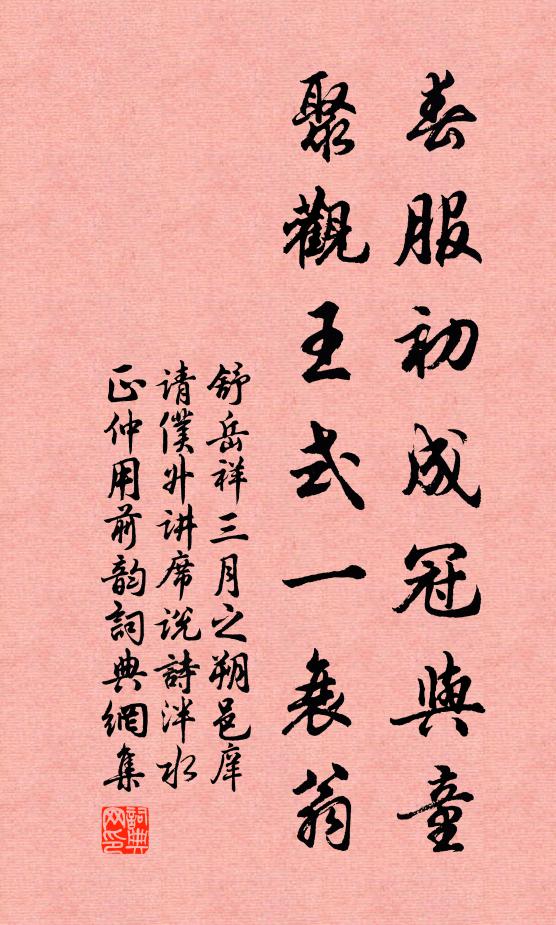 春服初成冠與童
聚觀王式一衰翁
舒岳祥三月之朔邑庠
请僕升讲席说詩泮水
正仲用前韵詞典網集
詞典网印